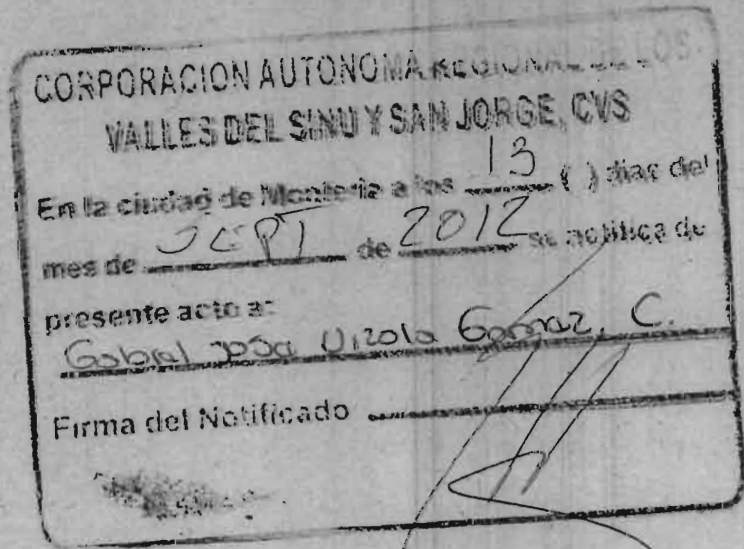 CORPORACION AUTONOMA REGIONAL DE LOS
VALLES DEL SINU Y SAN JORGE, CVS
En la ciudad de Monteria a los 13 ( ) dias del
mes de SEPT de 2012 se notifica de
presente acto a:
Gabriel José
Firma del Notificado